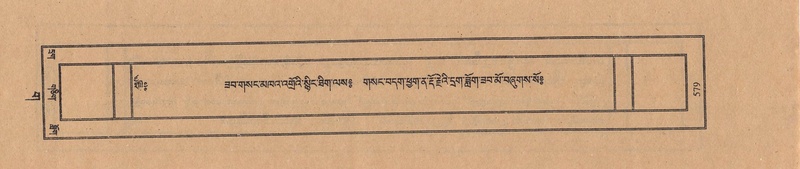 དྲག གཅིག ཟློག
ཟབ་གསང་མཁའ་འགྲོའི་སྙིང་ཐིག་ལས༔ གསང་བདག་ཕྱག་ན་རྡོ་རྗེའི་དྲག་ཟློག་ཟབ་མོ་བཞུགས་སོ༔
579